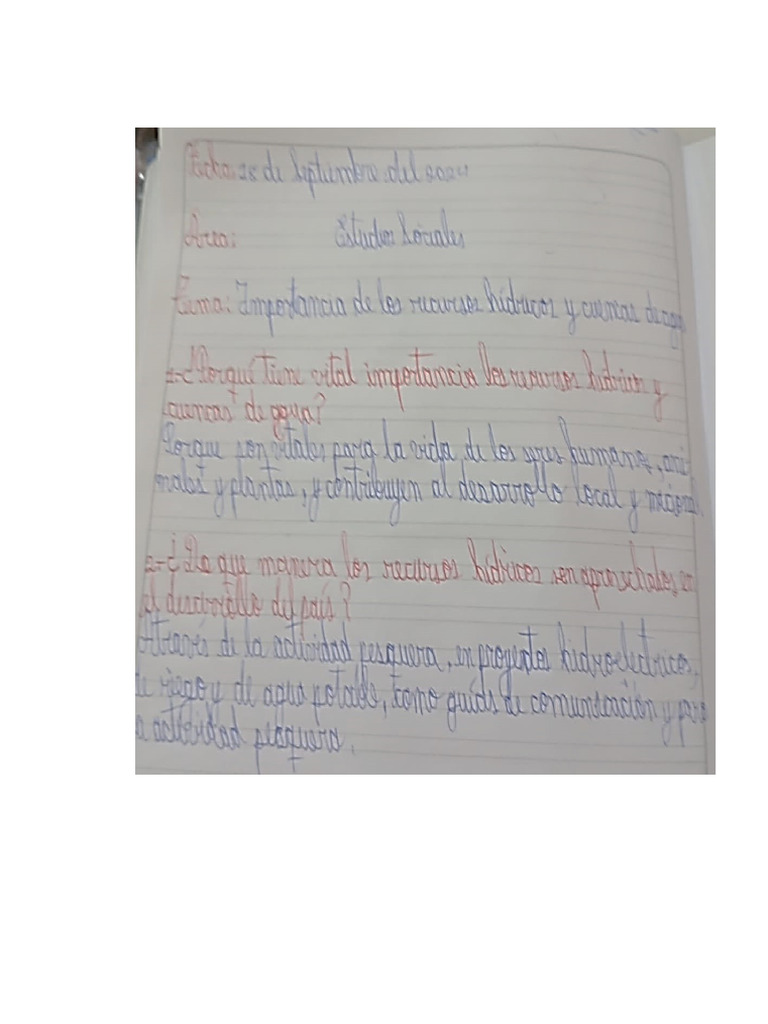 Fecha: 18 de Septiembre del 2024
Area: Estudios Sociales
Tema: Importancia de los recursos hídricos y cuencas de ag
1-¿Porqué tiene vital importancia los recursos hídricos y
cuencas de agua?
Porque son vitales para la vida de los seres humanos, ani
males y plantas, y contribuyen al desarrollo local y nacional.
2-¿De que manera los recursos hídricos son aprovechados en
el desarrollo del país?
Através de la actividad pesquera, en proyectos hidroelectricos,
de riego y de agua potable, como guías de comunicación y para
a actividad pesquera.